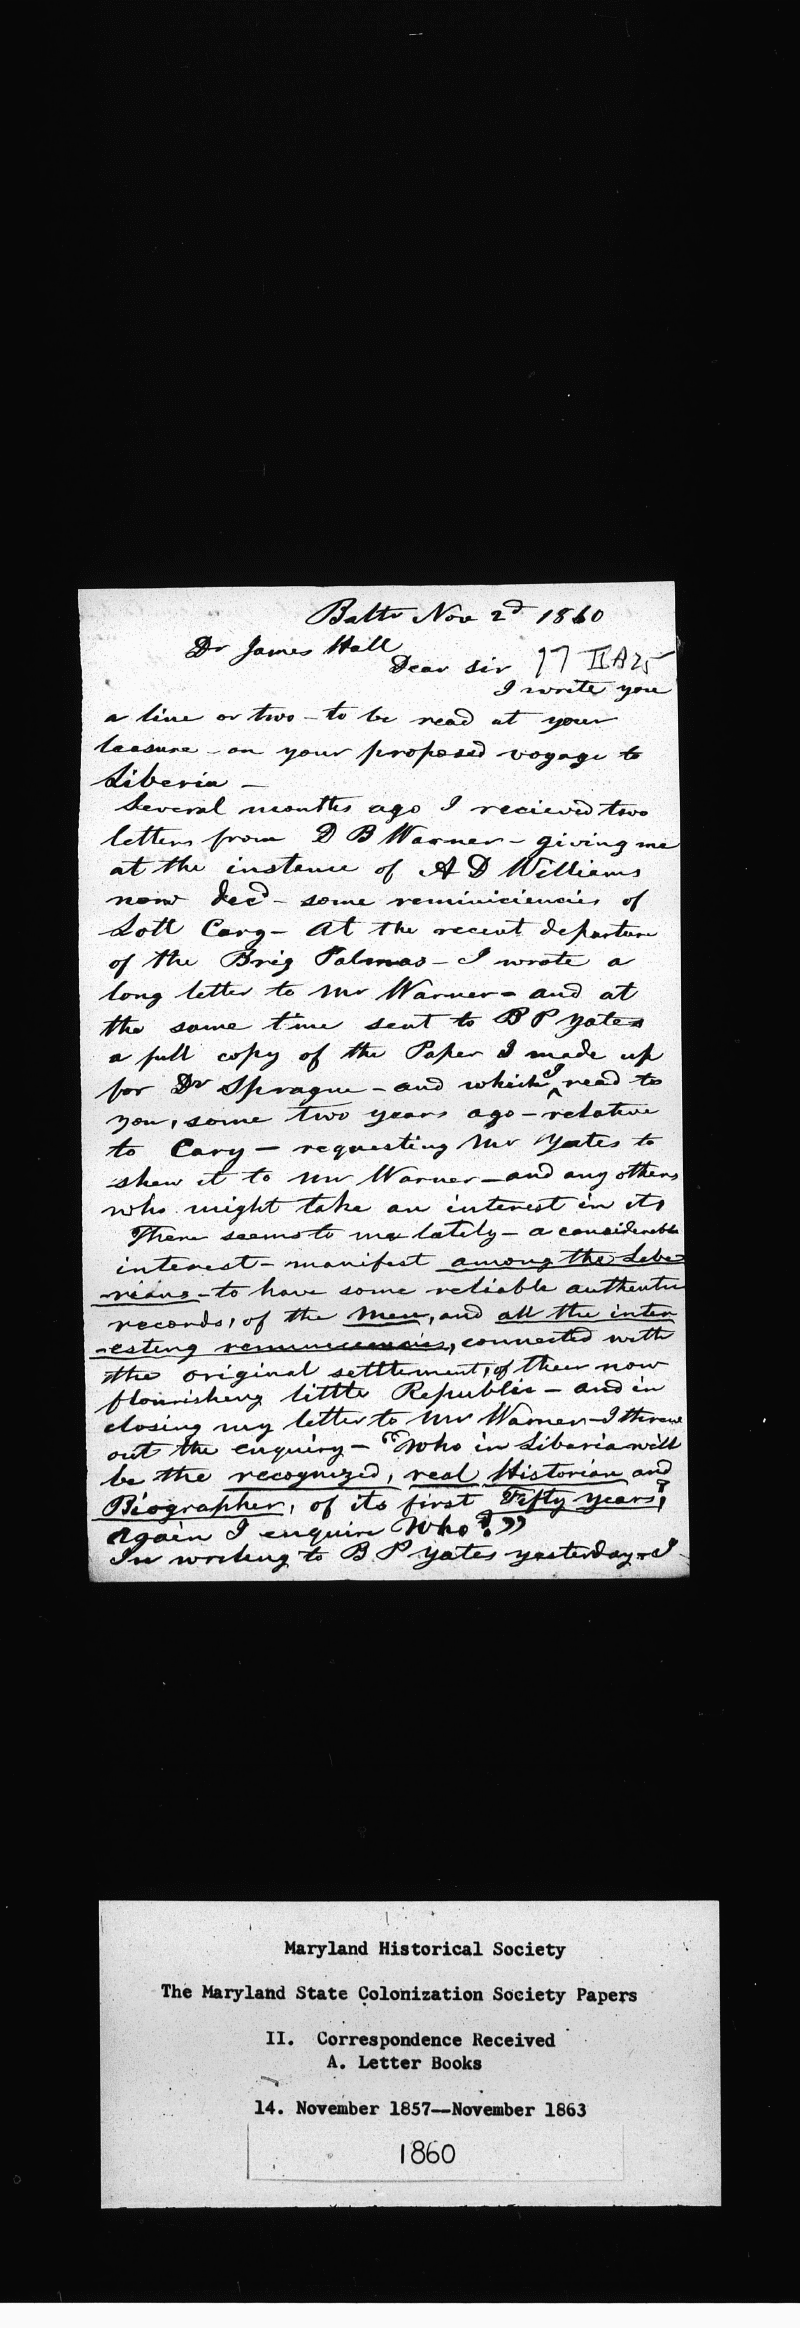 Balto Nov 2d 1860
Dr James Hall
Dear Sir 17 IIA25
I write you
a line or two - to be read at your
leasure - on your proposed voyage to
Liberia -
Several months ago I recieved two
letters from D B Warner - giving me
at the instance of A D Williams
now decd - some reminiciencies of
Lott Cary - At the recent departure
of the Brig Palmas - I wrote a
long letter to Mr Warner - and at
the same time sent to B P Yates
a full copy of the Paper I made up
for Dr Sprague - and which I read to
you, some two years ago - relative
to Cary - requesting Mr Yates to
shew it to Mr Warner - and any others
who might take an interest in it.
There seems to me lately - a considerable
interest - manifest among the Libe
-rians - to have some reliable authentic
records, of the men, and all the inter
-esting reminiscencies, connected with
the original settlement, of their now
flourishing little Republic - and in
closing my letter to Mr Warner - I threw
out the enquiry - "Who in Liberia will
be the recognized, real Historian and
Biographer, of its first Fifty years?
Again I enquire Who?"
In writing to B P Yates yesterday - I
Maryland Historical Society
The Maryland State Colonization Society Papers
II. Correspondence Received
A. Letter Books
14. November 1857--November 1863
1860